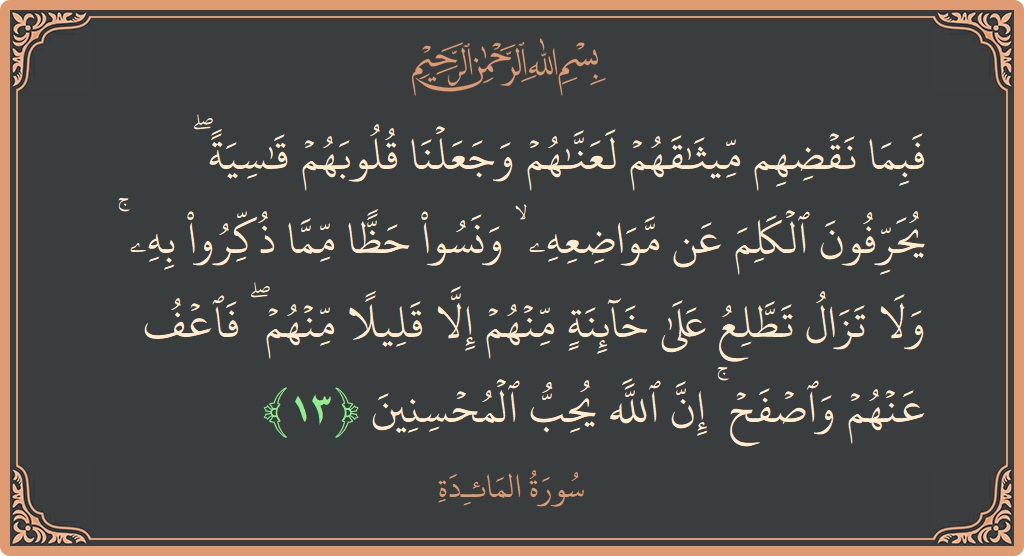 بِسْمِ اللَّهِ الرَّحْمَٰنِ الرَّحِيمِ
فَبِمَا نَقْضِهِم مِّيثَـٰقَهُمْ لَعَنَّـٰهُمْ وَجَعَلْنَا قُلُوبَهُمْ قَـٰسِيَةً ۖ
يُحَرِّفُونَ ٱلْكَلِمَ عَن مَّوَاضِعِهِۦ ۙ وَنَسُوا۟ حَظًّا مِّمَّا ذُكِّرُوا۟ بِهِۦ ۚ
وَلَا تَزَالُ تَطَّلِعُ عَلَىٰ خَآئِنَةٍ مِّنْهُمْ إِلَّا قَلِيلًا مِّنْهُمْ ۖ فَٱعْفُ
عَنْهُمْ وَٱصْفَحْ ۚ إِنَّ ٱللَّهَ يُحِبُّ ٱلْمُحْسِنِينَ ﴿١٣﴾
سُورَةُ المَائِدَةِ